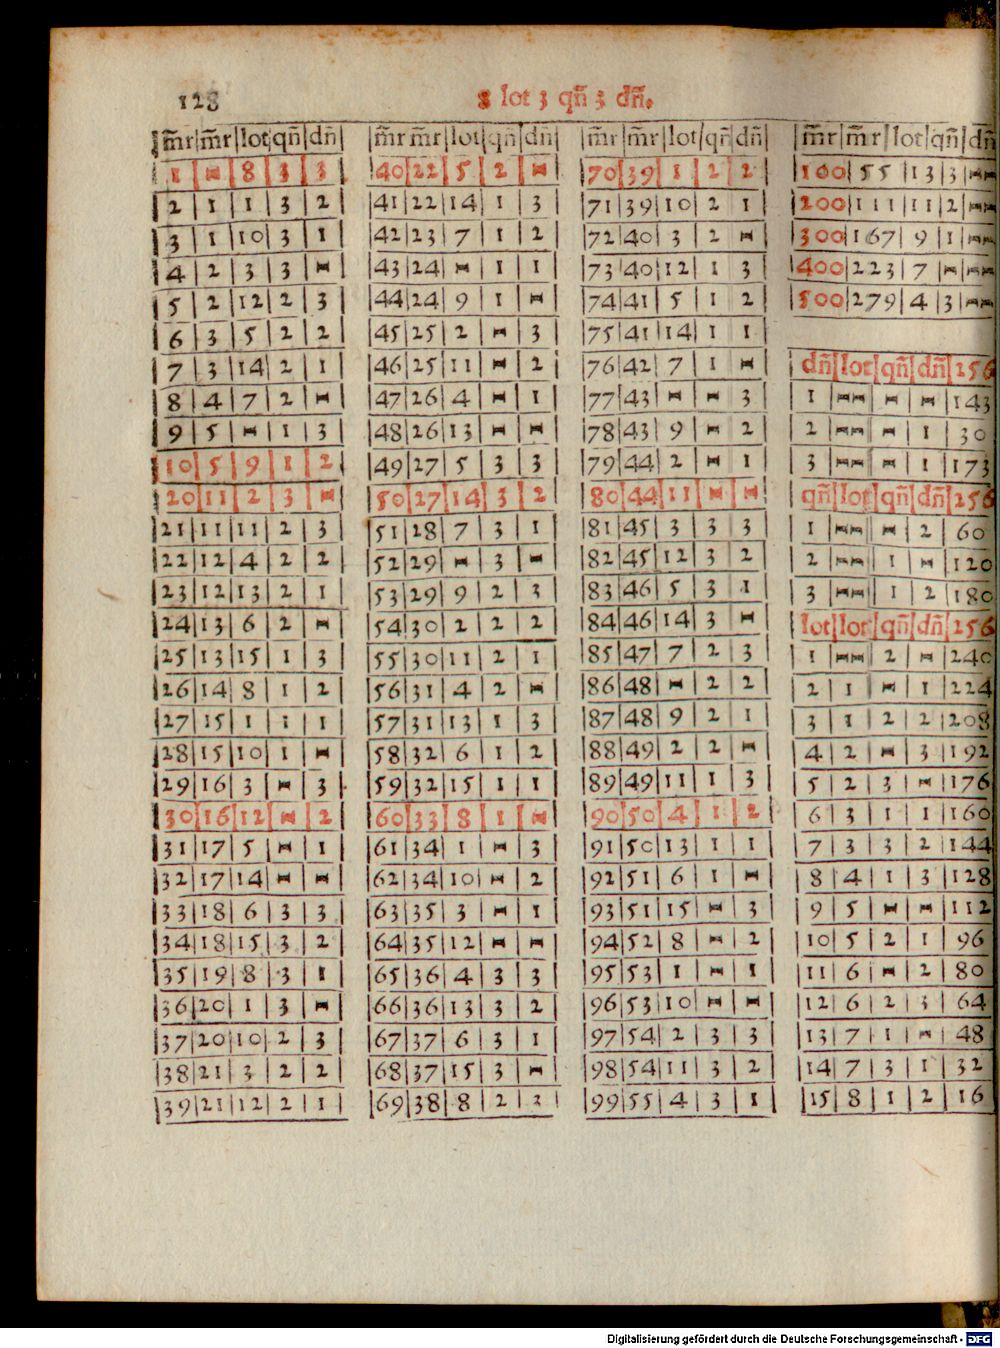 128
8 lot 3 qñ 3 dñ.
m̄r m̄r lot qñ dñ
1 — 8 3 3
2 1 1 3 2
3 1 10 3 1
4 2 3 3 —
5 2 12 2 3
6 3 5 2 2
7 3 14 2 1
8 4 7 2 —
9 5 — 1 3
10 5 9 1 2
20 11 2 3 —
21 11 11 2 3
22 12 4 2 2
23 12 13 2 1
24 13 6 2 —
25 13 15 1 3
26 14 8 1 2
27 15 1 1 1
28 15 10 1 —
29 16 3 — 3
30 16 12 — 2
31 17 5 — 1
32 17 14 — —
33 18 6 3 3
34 18 15 3 2
35 19 8 3 1
36 20 1 3 —
37 20 10 2 3
38 21 3 2 2
39 21 12 2 1
m̄r m̄r lot qñ dñ
40 22 5 2 —
41 22 14 1 3
42 23 7 1 2
43 24 — 1 1
44 24 9 1 —
45 25 2 — 3
46 25 11 — 2
47 26 4 — 1
48 26 13 — —
49 27 5 3 3
50 27 14 3 2
51 28 7 3 1
52 29 — 3 —
53 29 9 2 3
54 30 2 2 2
55 30 11 2 1
56 31 4 2 —
57 31 13 1 3
58 32 6 1 2
59 32 15 1 1
60 33 8 1 —
61 34 1 — 3
62 34 10 — 2
63 35 3 — 1
64 35 12 — —
65 36 4 3 3
66 36 13 3 2
67 37 6 3 1
68 37 15 3 —
69 38 8 2 3
m̄r m̄r lot qñ dñ
70 39 1 2 2
71 39 10 2 1
72 40 3 2 —
73 40 12 1 3
74 41 5 1 2
75 41 14 1 1
76 42 7 1 —
77 43 — — 3
78 43 9 — 2
79 44 2 — 1
80 44 11 — —
81 45 3 3 3
82 45 12 3 2
83 46 5 3 1
84 46 14 3 —
85 47 7 2 3
86 48 — 2 2
87 48 9 2 1
88 49 2 2 —
89 49 11 1 3
90 50 4 1 2
91 50 13 1 1
92 51 6 1 —
93 51 15 — 3
94 52 8 — 2
95 53 1 — 1
96 53 10 — —
97 54 2 3 3
98 54 11 3 2
99 55 4 3 1
m̄r m̄r lot qñ dñ
100 55 13 3 —
200 111 11 2 —
300 167 9 1 —
400 223 7 — —
500 279 4 3 —
dñ lot qñ dñ 256
1 — — — 143
2 — — 1 30
3 — — 1 173
qñ lot qñ dñ 256
1 — — 2 60
2 — 1 — 120
3 — 1 2 180
lot lot qñ dñ 256
1 — 2 — 240
2 1 — 1 224
3 1 2 2 208
4 2 — 3 192
5 2 3 — 176
6 3 1 1 160
7 3 3 2 144
8 4 1 3 128
9 5 — — 112
10 5 2 1 96
11 6 — 2 80
12 6 2 3 64
13 7 1 — 48
14 7 3 1 32
15 8 1 2 16
Digitalisierung gefördert durch die Deutsche Forschungsgemeinschaft - DFG